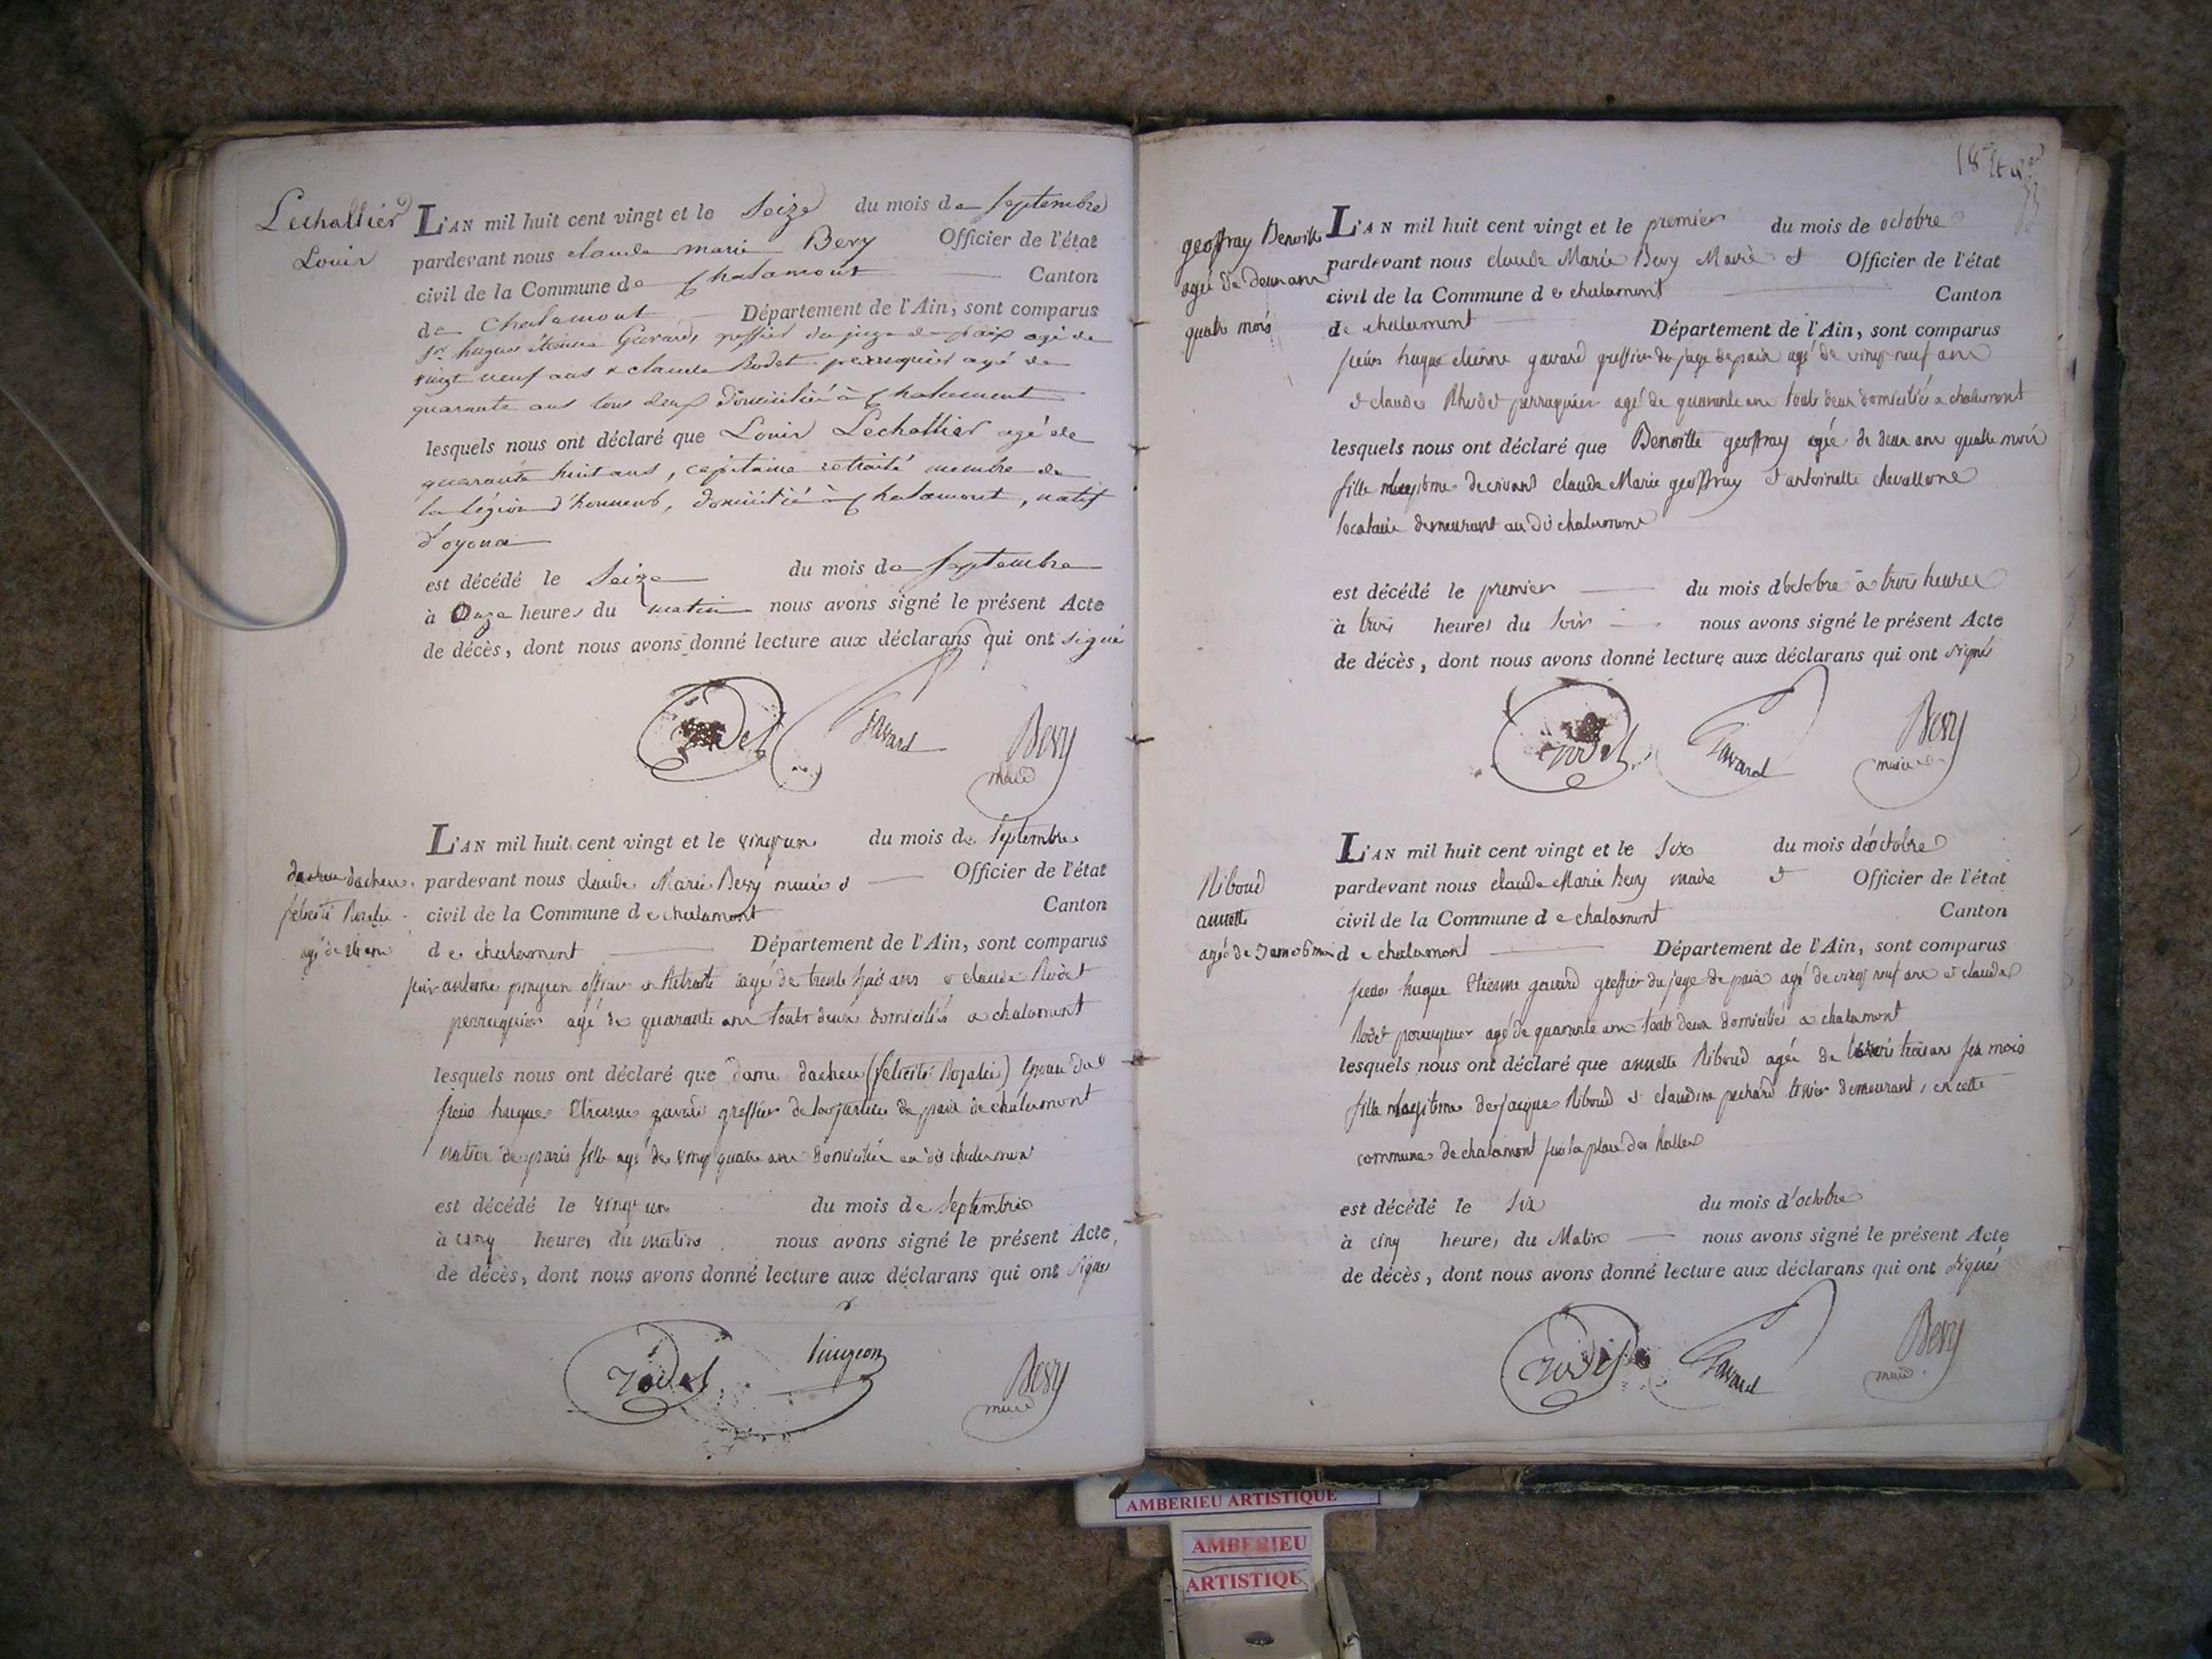 Lechallier
Louis
L'AN mil huit cent vingt et le Seize du mois de Septembre
pardevant nous claude marie Bevy Officier de l'état
civil de la Commune de Chalamont Canton
de Chalamont Département de l'Ain, sont comparus
Sr. hugues étienne Gavard, greffier du juge de paix agé de
vingt neuf ans & claude Rodet perruquier agé de
quarante ans tous deux domicilié à Chalamont
lesquels nous ont déclaré que Louis Lechallier agé de
quarante huit ans, capitaine retraité membre de
la légion d'honneur, domicilié à Chalamont, natif
d'oyonax
est décédé le Seize du mois de Septembre
à Onze heures du matin nous avons signé le présent Acte
de décès, dont nous avons donné lecture aux déclarans qui ont signé
Rodet Gavard Bevy
maire
L'AN mil huit cent vingt et le vingt un du mois de Septembre
dacheu
felicité Rosalie
agé de 24 ans
pardevant nous claude Marie Bevy maire et Officier de l'état
civil de la Commune de chalamont Canton
de chalamont Département de l'Ain, sont comparus
antoine pingeon officier en Retraite agé de trente ans & claude Rodet
perruquier agé de quarante ans touts deux domiciliés a chalamont
lesquels nous ont déclaré que dame dacheu (felicité Rosalie) Epouse de
hugues Etienne gavard greffier de la justice de paix de chalamont
native de paris fille agé de vingt quatre ans domiciliée au dit chalamont
est décédé le vingt un du mois de Septembre
à cinq heures du matin nous avons signé le présent Acte,
de décès, dont nous avons donné lecture aux déclarans qui ont signés
Rodet Pingeon Bevy
maire
18
geoffray Benoitte
agée de deux ans
quatre mois
L'AN mil huit cent vingt et le premier du mois de octobre
pardevant nous claude Marie Bevy Maire et Officier de l'état
civil de la Commune de chalamont Canton
de chalamont Département de l'Ain, sont comparus
hugue etienne gavard greffier du juge de paix agé de vingt neuf ans
et claude Rhodet perruquier agé de quarante ans touts deux domiciliés a chalamont
lesquels nous ont déclaré que Benoitte geoffray agée de deux ans quatre mois
fille claude Marie geoffray et antoinette
locataire demeurant au dit chalamont
est décédé le premier du mois d'octobre à trois heures
à trois heures du Soir nous avons signé le présent Acte
de décès, dont nous avons donné lecture aux déclarans qui ont signés
Rodet Gavard Bevy
maire
L'AN mil huit cent vingt et le Six du mois d'octobre
Riboud
annette
agée de 3 ans 6 mois
pardevant nous claude Marie bevy maire et Officier de l'état
civil de la Commune de chalamont Canton
de chalamont Département de l'Ain, sont comparus
hugue Etienne gavard greffier du juge de paix agé de vingt neuf ans et claude
Rodet perruquier agé de quarante ans touts deux domiciliés a chalamont
lesquels nous ont déclaré que annette Riboud agée de trois ans six mois
fille de jacques Riboud et claudine pechard demeurant, en cette
commune de chalamont sur la place des halles
est décédé le Six du mois d'octobre
à cinq heures du Matin nous avons signé le présent Acte
de décès, dont nous avons donné lecture aux déclarans qui ont signés
Rodet Gavard Bevy
maire
AMBERIEU ARTISTIQUE
AMBERIEU
ARTISTIQUE